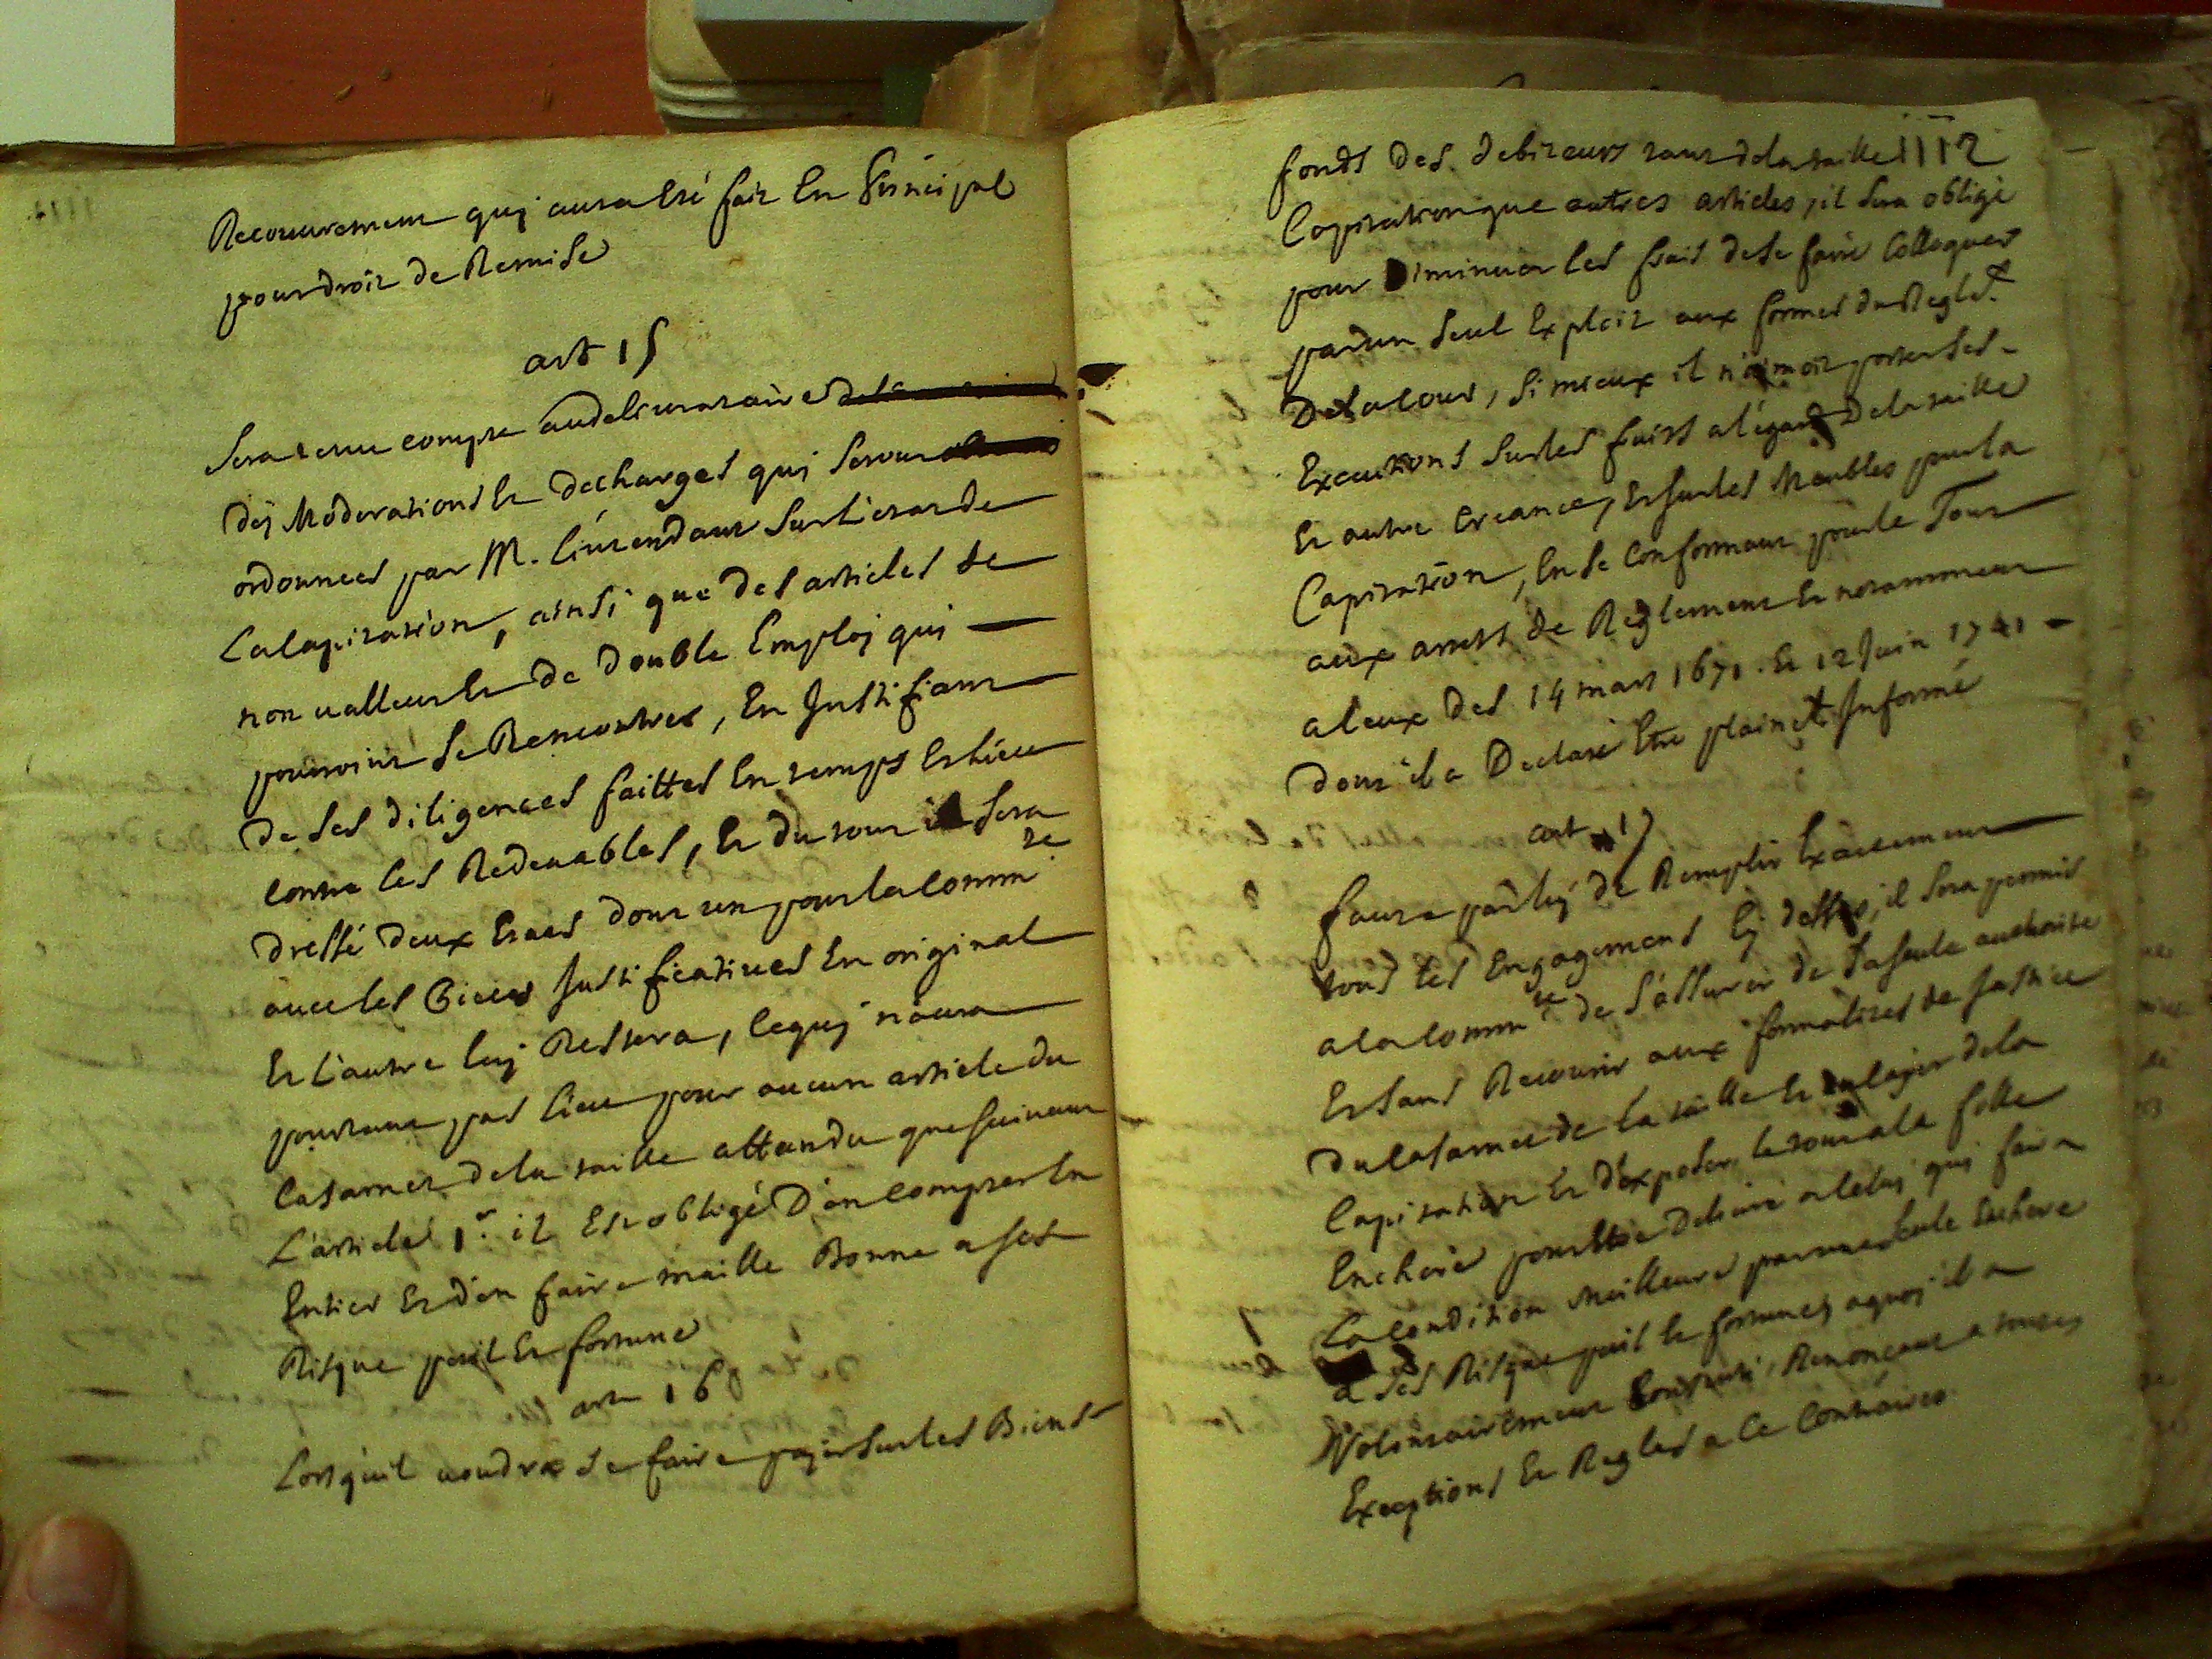 Recouvrement quj aura esté fait En Principal
pour droit de Remise
art 15
Sera tenu compte au delivrataire
des Moderations Et decharges quj seront
ordonnées par M. L'intendant sur L'etat de
La Capitation, ainsi que des articles de
non valleur Et de double Employ quj
pourroint se Rencontrer, En Justifiant
de ses diligences faittes En temps Et lieu
contre les Redevables, Et du tout il sera
dressé deux Etats dont un pour la Comm.té
avec les Pieces Justificatives En original
Et L'autre luj Restera, ce quj n'aura
pourtant pas lieu pour aucun article du
Casarnet de la taille attandu que suivant
L'article 1.r il Est obligé D'en compter En
Entier Et d'en faire maille Bonne a ses
Risque peril Et fortune
art 16
Lorsqu'il voudra se faire pajer sur les Biens
1112
fonds des debiteurs tant de la taille
Capitation que autres articles, il sera obligé
pour Diminuer les frais de se faire Colloquer
par un seul Exploit aux formes du Reglet.
De la Cour, si mieux il n'aimoit porter ses
Executions sur les fruits a l'égard De la taille
Et autre Creance, Et sur les Meubles pour la
Capitation, En se Conformant pour le Tout
aux arrets de Reglement Et notamment
a Ceux des 14 mars 1671. Et 12 Juin 1741
dont il a Declaré Etre plainet Informé
art 17
faute par luj de Remplir Exactement
tous les Engagemens Cj dessus, il sera permis
a la Comm.té de s'assurer de sa seule authorité
Et sans Recourir aux formalités de Justice
du Casarnet de la taille Et du Cajer de la
Capitation Et d'exposer le tout a la folle
Enchere pour Etre Delivré a Celuj quj faira
La Condition Meilleure par une seule Enchere
a ses Risque peril Et fortune, a quoj il a
Volontairement Consenti, Renonçant a toutes
Exceptions Et Regles a Ce Contraires